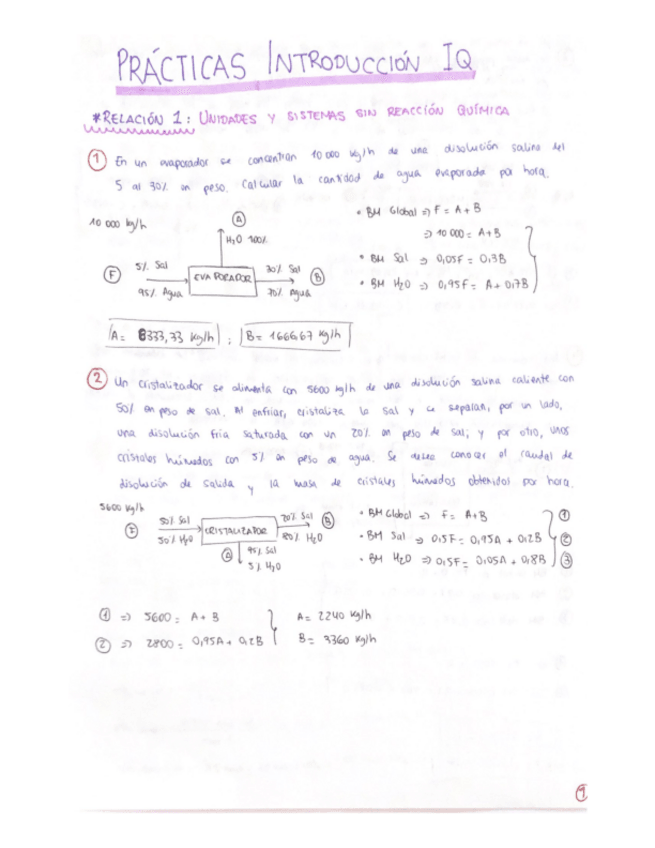 PRÁCTICAS INTRODUCCIÓN IQ
*RELACIÓN 1: UNIDADES Y SISTEMAS SIN REACCIÓN QUÍMICA
① En un evaporador se concentran 10 000 kg/h de una disolución salina del
5 al 30% en peso. Calcular la cantidad de agua evaporada por hora.
10 000 kg/h
Ⓐ
H₂O 100%
Ⓕ
5% Sal
95% Agua
EVAPORADOR
30% Sal
70% Agua
Ⓑ
• BM Global ⇒ F = A + B
⇒ 10 000 = A + B
• BM Sal ⇒ 0,05F = 0,3B
• BM H₂O ⇒ 0,95F = A + 0,7B
A = 8333,33 kg/h ; B = 1666,67 kg/h
② Un cristalizador se alimenta con 5600 kg/h de una disolución salina caliente con
50% en peso de sal. Al enfriar, cristaliza la sal y se separan, por un lado,
una disolución fría saturada con un 20% en peso de sal; y por otro, unos
cristales húmedos con 5% en peso de agua. Se desea conocer el caudal de
disolución de salida y la masa de cristales húmedos obtenidos por hora.
5600 kg/h
Ⓕ
50% Sal
50% H₂O
CRISTALIZADOR
20% Sal
80% H₂O
Ⓑ
Ⓐ
95% Sal
5% H₂O
• BM Global ⇒ F = A + B ①
• BM Sal ⇒ 0,5F = 0,95A + 0,2B ②
• BM H₂O ⇒ 0,5F = 0,05A + 0,8B ③
① ⇒ 5600 = A + B
② ⇒ 2800 = 0,95A + 0,2B
A = 2240 kg/h
B = 3360 kg/h
①